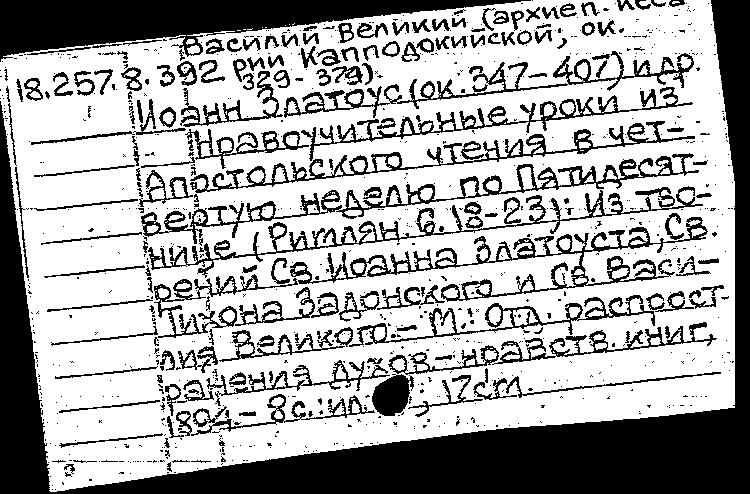 Василий Великий (архиеп. Кеса
рии Капподокийской; ок.
18.257.8.392 329-379).
Иоанн Златоус (ок. 347-407) и др.
Нравоучительные уроки из
Апостольского чтения в чет-
вертую неделю по Пятидесят-
нице (Римлян. 6. 18-23): Из тво-
рений Св. Иоанна Златоуста, Св.
Тихона Задонского и Св. Васи-
лия Великого.- М.: Отд. распрост-
ранения духов.-нравств. книг,
1894.- 8 с.: ил. ; 17 cm.